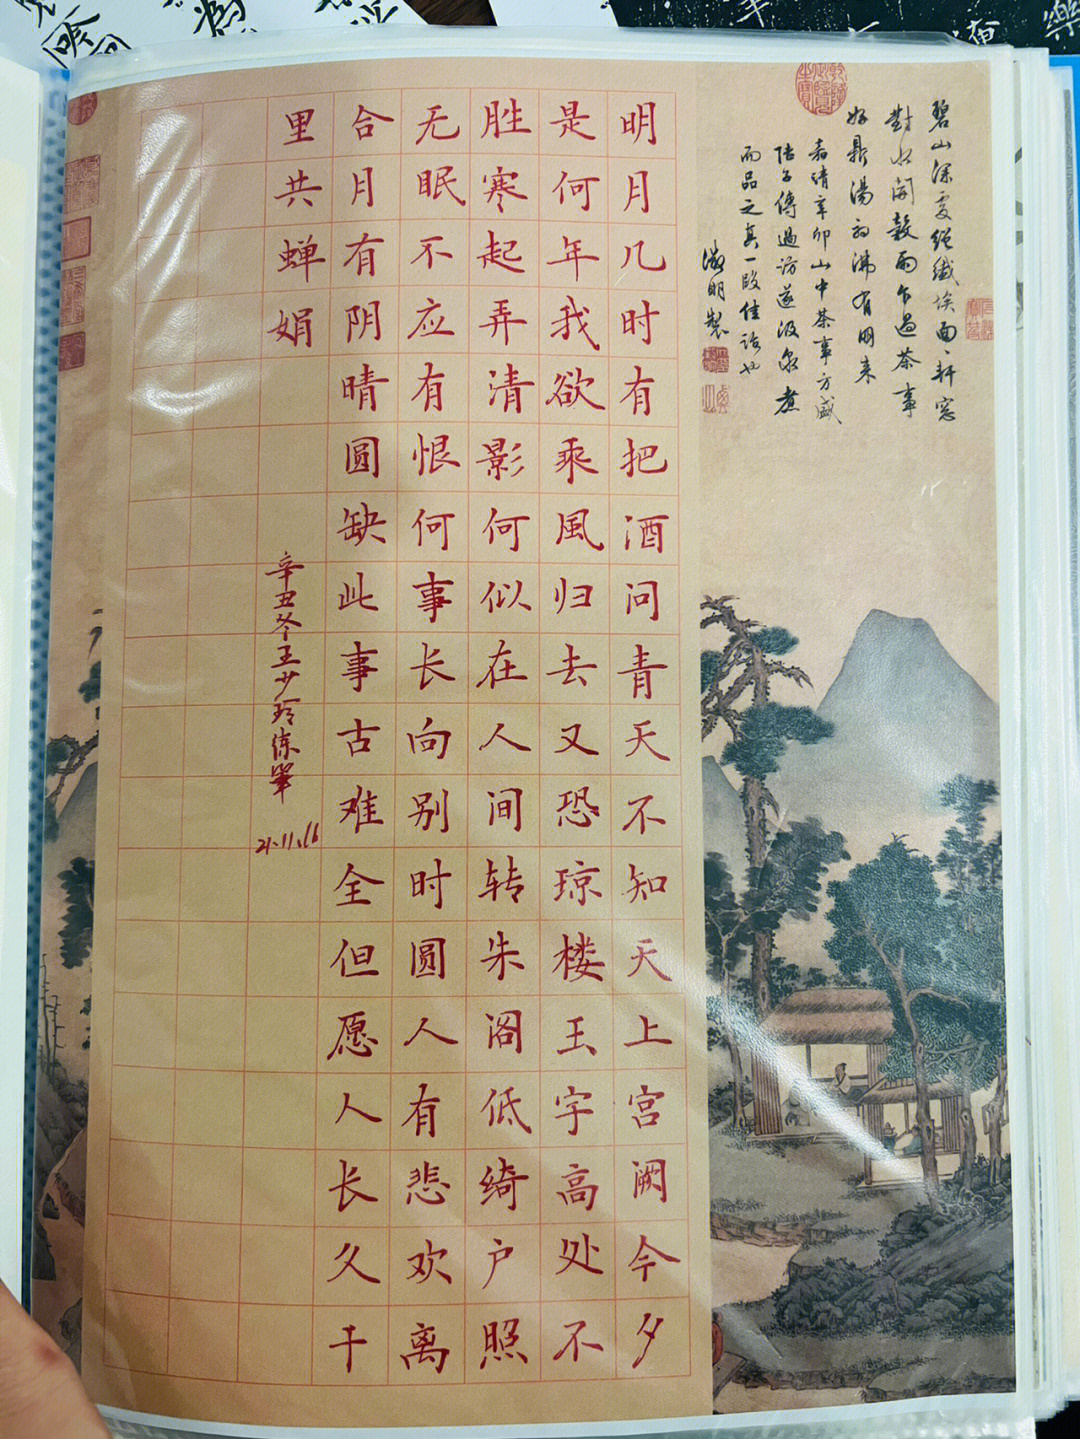 碧山深處絕纖埃面〻軒窓
對水開穀雨乍過茶事
好鼎湯初沸有朋来
嘉靖辛卯山中茶事方盛
陸子傳過訪遂汲泉煮
而品之真一段佳話也
徵明製
明月几时有把酒问青天不知天上宫阙今夕
是何年我欲乘風归去又恐琼楼玉宇高处不
胜寒起弄清影何似在人间转朱阁低绮户照
无眠不应有恨何事长向别时圆人有悲欢离
合月有阴晴圆缺此事古难全但愿人长久千
里共蝉娟
辛丑冬王少玲练筆
21.11.16